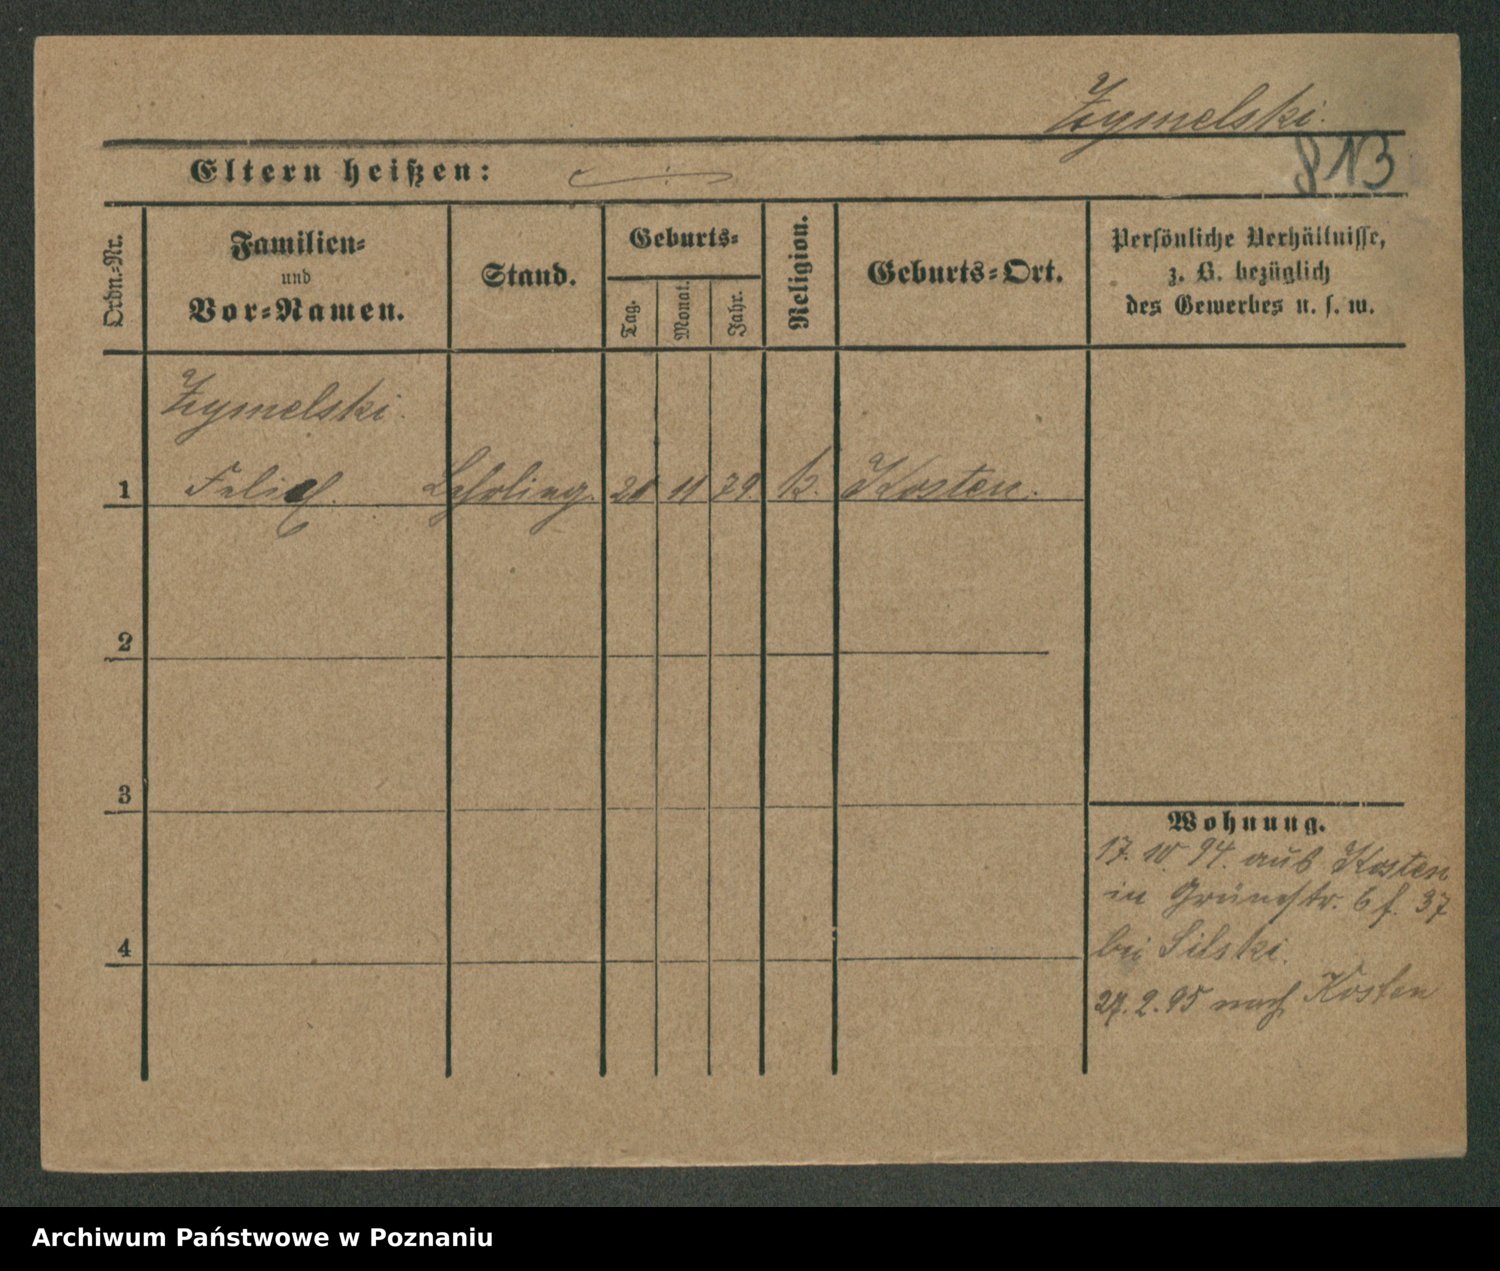 Zymelski.
813
Eltern heißen:
Ordn.-Nr.
Familien-
und
Vor-Namen.
Stand.
Geburts-
Tag.
Monat.
Jahr.
Religion.
Geburts-Ort.
Persönliche Verhältnisse,
z. B. bezüglich
des Gewerbes u. s. w.
Zymelski.
1 Lehrling. 11 79. k. Kosten.
2
3
4
Wohnung.
17. 10. 94. aus Kosten
in Grünstr. 6 f. 37
bei Silski.
27. 2. 95 nach Kosten
Archiwum Państwowe w Poznaniu